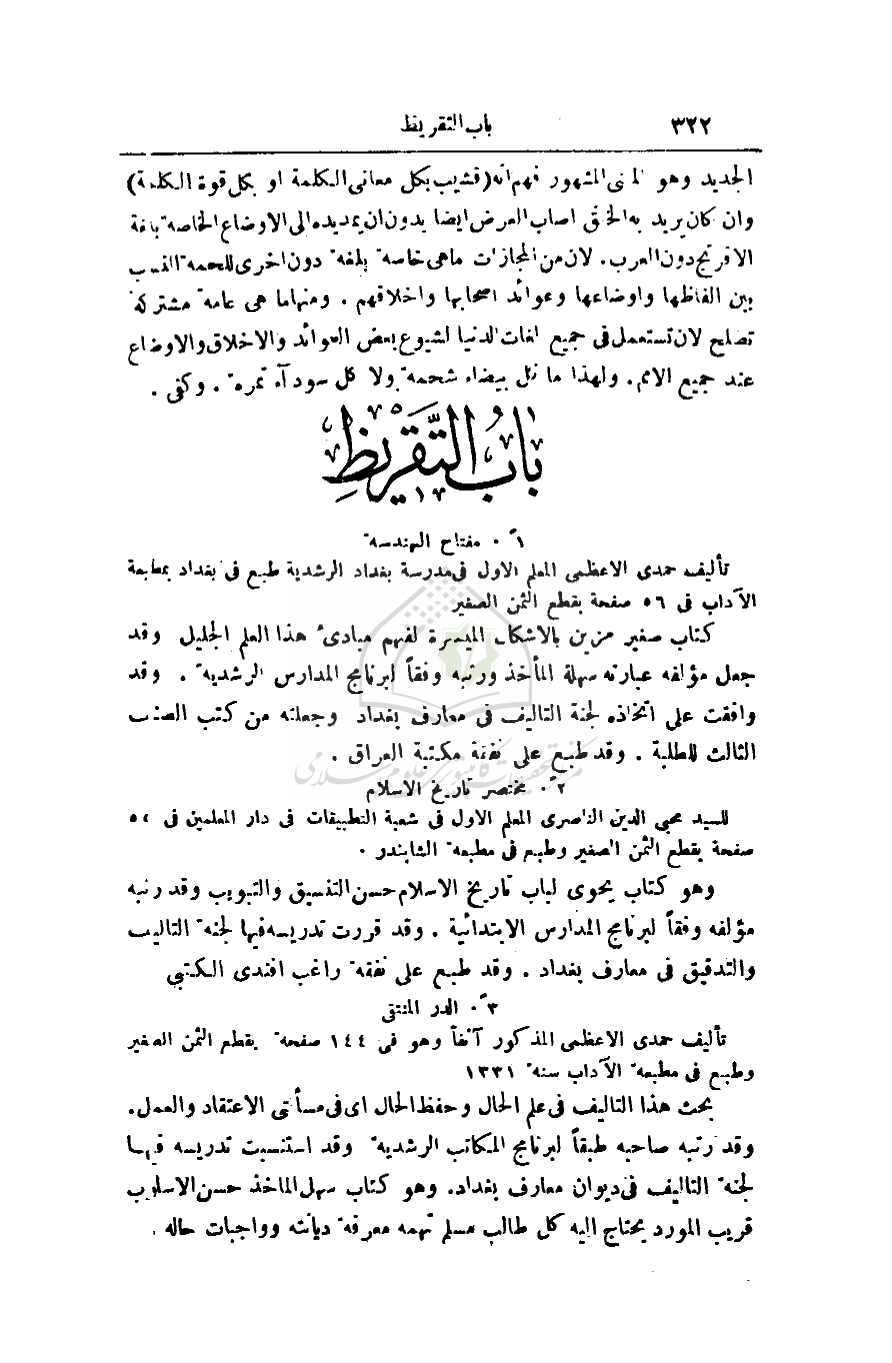 ٣٢٢
باب التقريظ
الجديد وهو المنى المشهور فهم انه (قشيب بكل معانى الكلمة او بكل قوة الكلمة)
وان كان يريد به الخلق اصاب العرض ايضا بدون ان يمديده الى الاوضاع الخاصة بلغة
الافرنج دون العرب. لان من المجازات ماهى خاصة بلغة دون اخرى للحمة النسب
بين الفاظها واوضاعها وعوائد اصحابها واخلاقهم . ومنها ما هى عامة مشتركة
تصلح لان تستعمل فى جميع لغات الدنيا لشيوع بعض العوائد والاخلاق والاوضاع
عند جميع الامم. ولهذا ما كل بيضاء شحمة ولا كل سودآء تمرة . وكفى .
بَابُ التَّقْرِيظِ
١ً . مفتاح الهندسة
تأليف حمدى الاعظمى المعلم الاول فى مدرسة بغداد الرشدية طبع فى بغداد بمطبعة
الآداب فى ٥٦ صفحة بقطع الثمن الصغير
كتاب صغير مزين بالاشكال الميسرة لفهم مبادئ هذا العلم الجليل وقد
جعل مؤلفه عبارته سهلة المأخذ ورتبه وفقاً لبرنامج المدارس الرشدية . وقد
وافقت على اتخاذه لجنة التاليف فى معارف بغداد وجعلته من كتب الصنف
الثالث للطلبة . وقد طبع على نفقة مكتبة العراق .
مركز تحقيقات كامپيوترى علوم اسلامى
٢ً . مختصر تاريخ الاسلام
للسيد محيي الدين الناصرى المعلم الاول فى شعبة التطبيقات فى دار المعلمين فى ٥٤
صفحة بقطع الثمن الصغير وطبع فى مطبعة الشابندر .
وهو كتاب يحوى لباب تاريخ الاسلام حسن التنسيق والتبويب وقد رتبه
مؤلفه وفقاً لبرنامج المدارس الابتدائية . وقد قررت تدريسه فيها لجنة التاليف
والتدقيق فى معارف بغداد . وقد طبع على نفقة راغب افندى الكتبي
٣ً . الدر المنتقى
تأليف حمدى الاعظمى المذكور آنفاً وهو فى ١٤٤ صفحة بقطع الثمن الصغير
وطبع فى مطبعة الآداب سنة ١٣٣١
بحث هذا التاليف فى علم الحال وحفظ الحال اى فى مسألتى الاعتقاد والعمل.
وقد رتبه صاحبه طبقاً لبرنامج المكاتب الرشدية وقد استنسبت تدريسه فيها
لجنة التاليف فى ديوان معارف بغداد. وهو كتاب سهل الماخذ حسن الاسلوب
قريب المورد يحتاج اليه كل طالب مسلم تهمه معرفة ديانته وواجبات حاله .